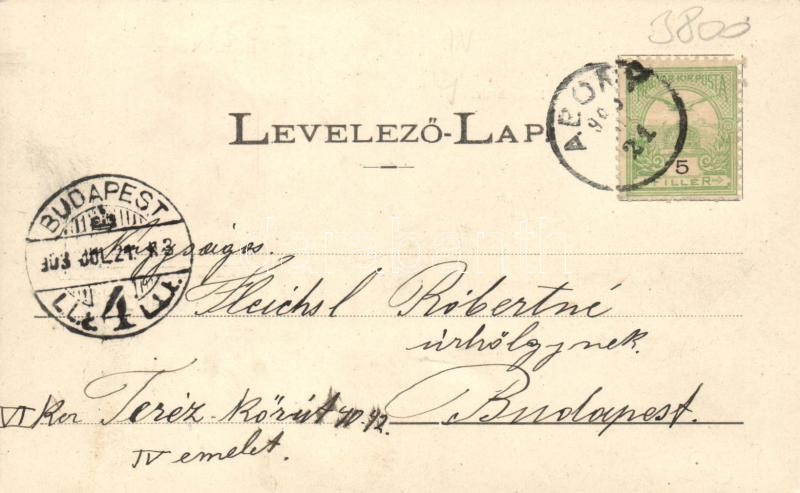 3800
LEVELEZŐ-LAP
ABONY
903
21
MAGYAR KIR. POSTA
5
FILLÉR
BUDAPEST
903 JUL. 21
4
Nagyságos
Fleichsl Róbertné
úrhölgynek.
VI Ker Teréz körút 40.42. Budapest.
IV emelet.
darabanth